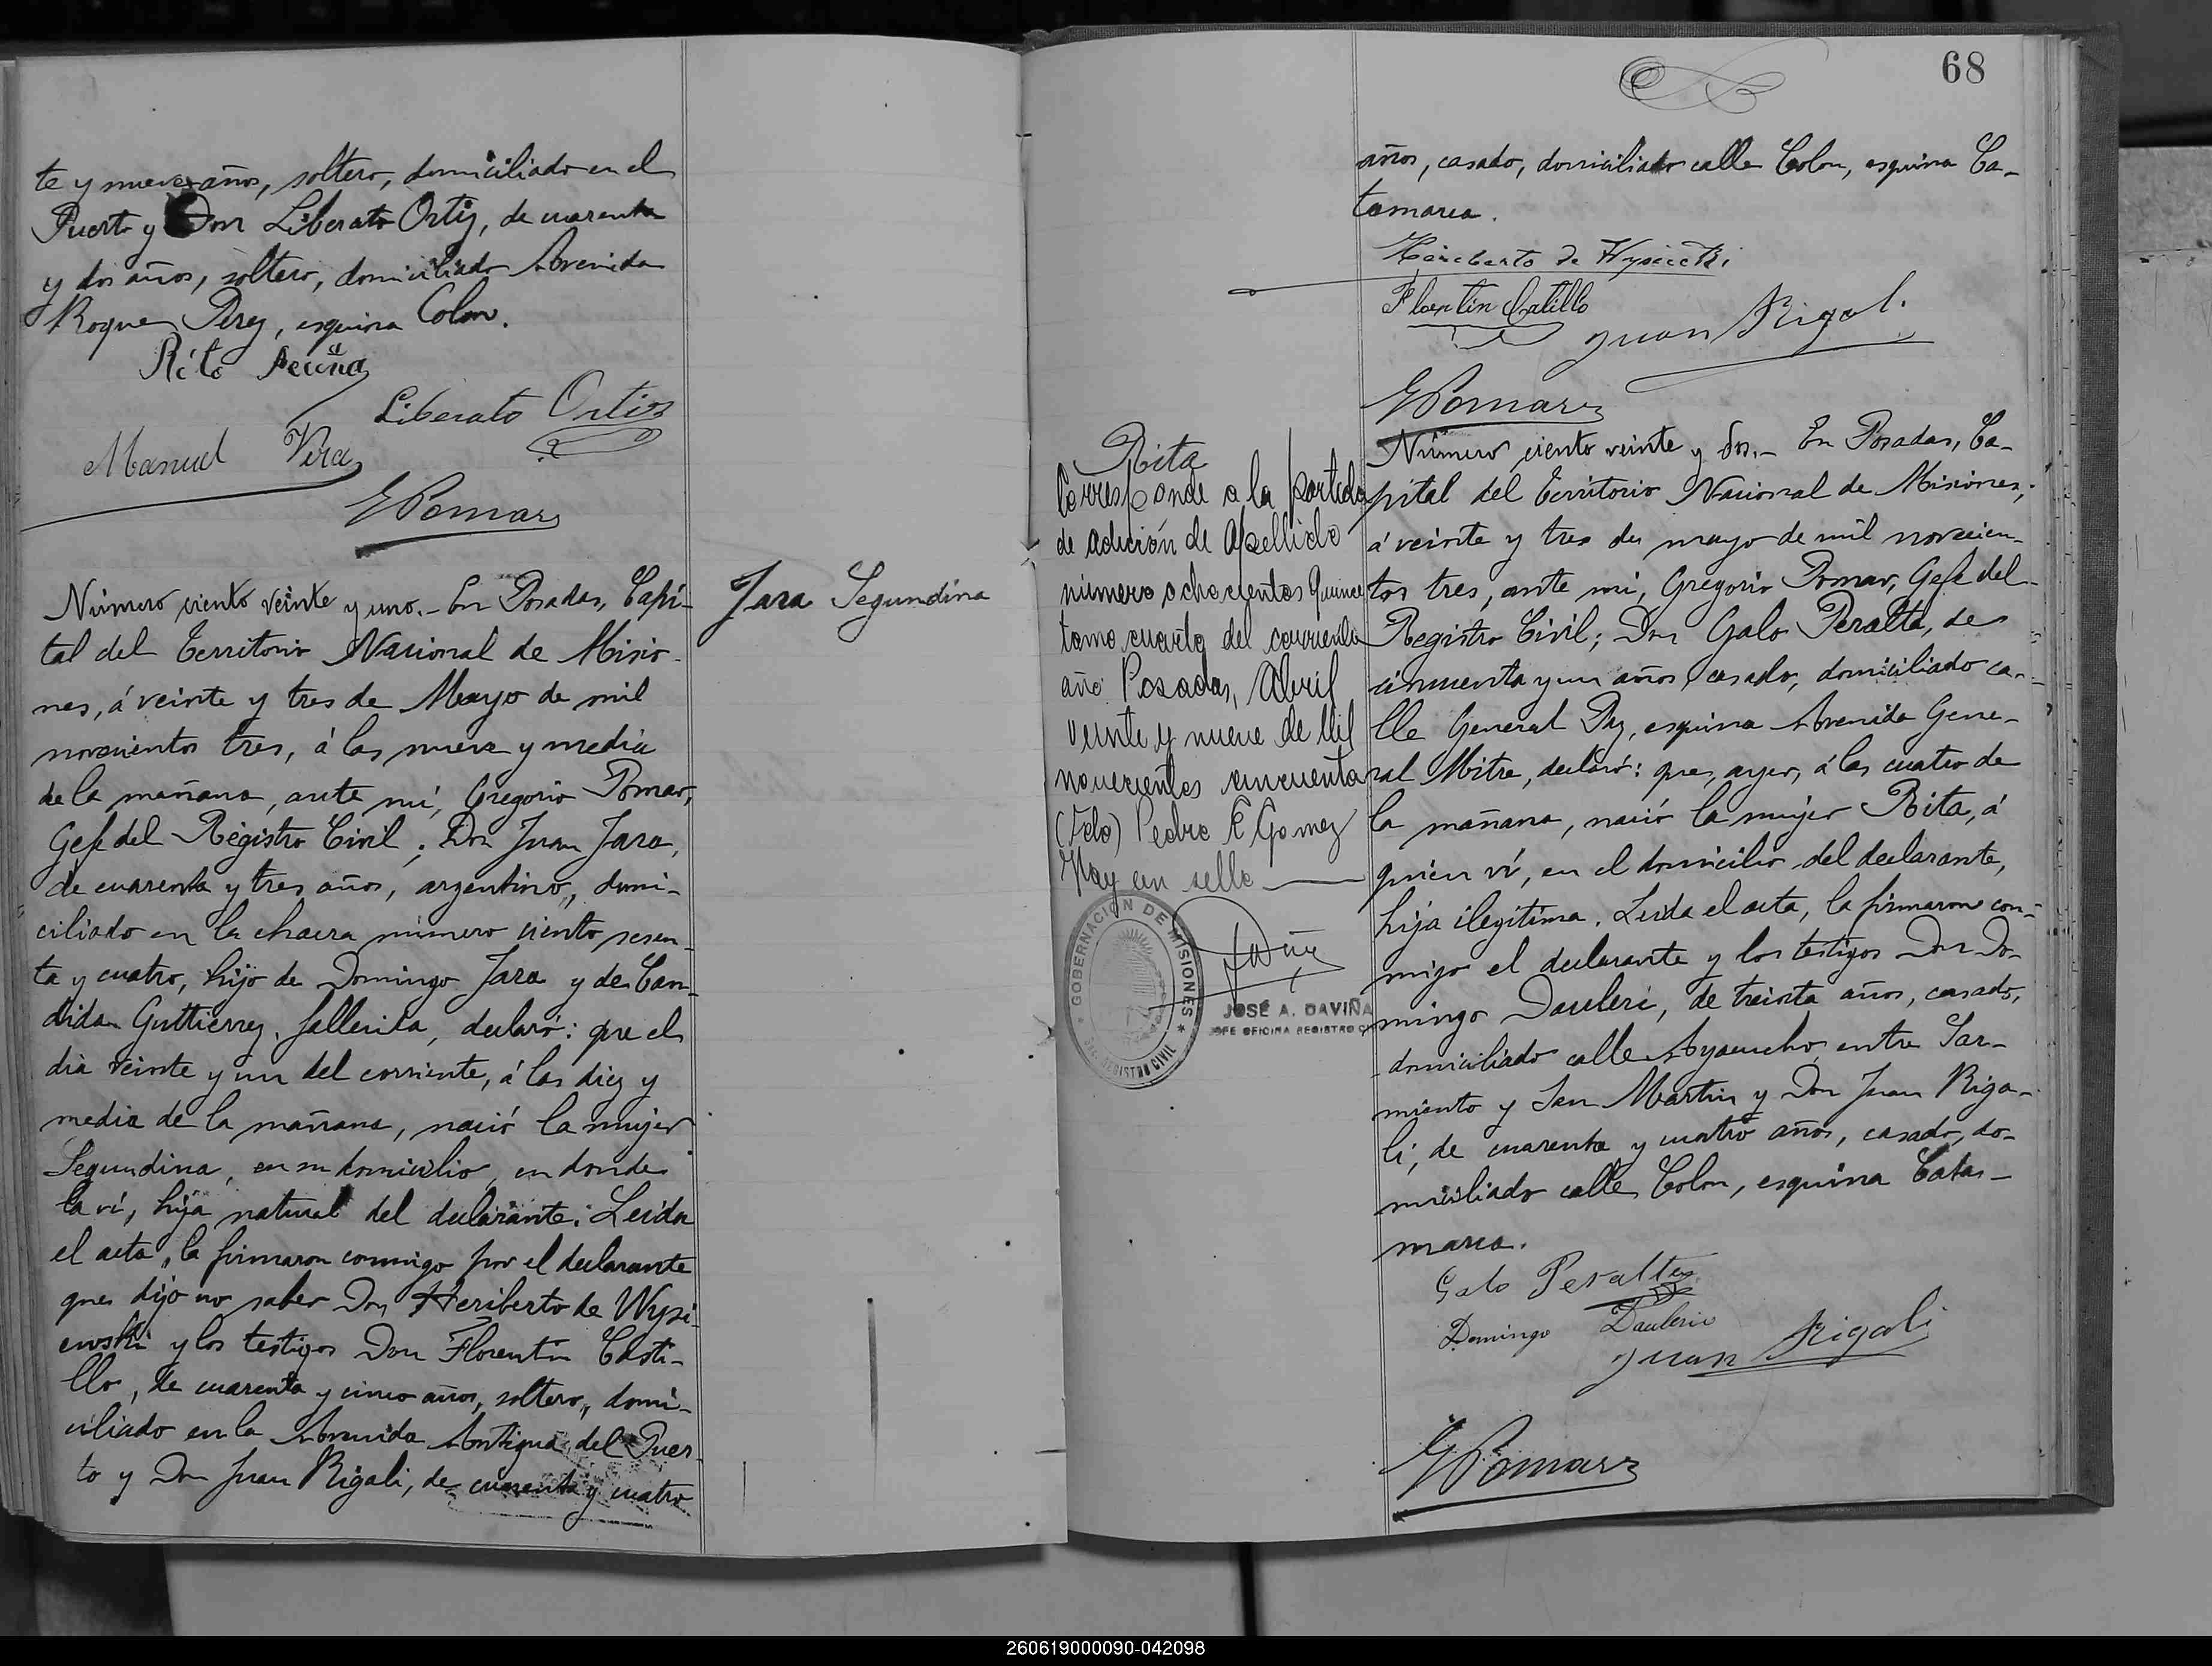 te y nueve años, soltero, domiciliado en el
Puerto y Don Liberato Ortiz, de cuarenta
y dos años, soltero, domiciliado Avenida
Roque Perez, esquina Colon.
Rito Acuña
Liberato Ortiz
Manuel Vera
GPomar
Número ciento veinte y uno.- En Posadas, Capi-
tal del Territorio Nacional de Misio-
nes, á veinte y tres de Mayo de mil
novecientos tres, á las nueve y media
de la mañana, ante mí, Gregorio Pomar,
Gefe del Registro Civil; Don Juan Jara,
de cuarenta y tres años, argentino, domi-
ciliado en la chacra número ciento sesen-
ta y cuatro, hijo de Domingo Jara y de Can-
dida Guttierrez, fallecita, declaró: que el
dia veinte y un del corriente, á las diez y
media de la mañana, nació la mujer
Segundina, en su domicilio, en donde
la ví, hija natural del declarante. Leida
el acta, la firmaron conmigo por el declarante
que dijo no saber Don Heriberto de Wysi-
enski y los testigos Don Florentin Casti-
llo, de cuarenta y cinco años, soltero, domi-
ciliado en la Avenida Antigua del Puer-
to y Don Juan Rigali, de cuarenta y cuatro
Jara Segundina
68
años, casado, domiciliado calle Colon, esquina Ca-
tamarca.
Heriberto de
Florentin Catillo
Juan Rigali
GPomar
Rita
Corresponde a la partida
de adición de apellido
número ochocientos quince
tomo cuarto del corriente
año Posadas, Abril
veinte y nueve de Mil
novecientos cincuenta
(Fdo) Pedro E Gomez
Hay un sello
GOBERNACIÓN DE MISIONES
REGISTRO CIVIL
JOSÉ A. DAVIÑA
JEFE OFICINA REGISTRO C
Número ciento veinte y dos.- En Posadas, Ca-
pital del Territorio Nacional de Misiones,
á veinte y tres de mayo de mil novecien-
tos tres, ante mi, Gregorio Pomar, Gefe del
Registro Civil; Don Galo Peralta, de
cincuenta y un años, casado, domiciliado ca-
lle General Paz, esquina Avenida Gene-
ral Mitre, declaró: que, ayer, á las cuatro de
la mañana, nació la mujer Rita, á
quien ví, en el domicilio del declarante,
hija ilegítima. Leida el acta, la firmaron con-
migo el declarante y los testigos Don Do-
mingo Dauleri, de treinta años, casado,
domiciliado calle Ayacucho entre Sar-
miento y San Martin y Don Juan Riga-
li, de cuarenta y cuatro años, casado, do-
miciliado calle Colon, esquina Cata-
marca.
Galo Peralta
Domingo Dauleri
Juan Rigali
GPomar
260619000090-042098